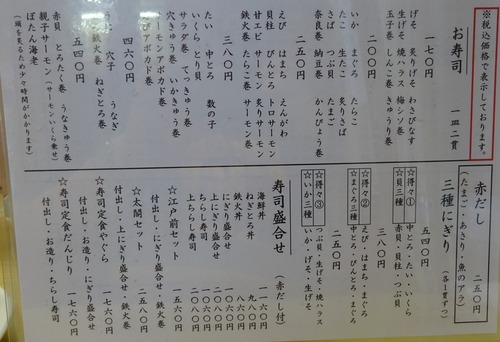 ※税込価格で表示しております。
お寿司 一皿二貫
一七〇円
げそ 炙りげそ わさびなす
生げそ 焼ハラス 梅シソ巻
玉子巻 しんこ巻 きゅうり巻
二〇〇円
いか まぐろ たらこ
たこ 生たこ 炙りさば
さば つぶ貝 たまご
奈良巻 納豆巻 かんぴょう巻
二五〇円
えび はまち えんがわ
貝柱 びんとろ トロサーモン
甘エビ サーモン 炙りサーモン
鉄火巻 たらこ巻 サーモン巻
三八〇円
たい 中とろ 数の子
いくら とり貝
サラダ巻 てっきゅう巻
穴きゅう巻 いかきゅう巻
サーモンアボカド巻
アボカド巻
四六〇円
うに 穴子 うなぎ
鉄火巻 ねぎとろ巻
五四〇円
赤貝 とろたく巻 うなきゅう巻
親子サーモン(サーモンいくら乗せ)
ぼたん海老
(頭を炙るため少々時間がかかります)
赤だし 二五〇円
(たまご・あさり・魚のアラ)
三種にぎり (各1貫ずつ)
五四〇円
☆得々① 中とろ・たい・いくら
☆貝三種 赤貝・貝柱・つぶ貝
三八〇円
☆得々② えび・はまち・まぐろ
☆まぐろ三種 中とろ・びんとろ・まぐろ
二五〇円
☆得々③ つぶ貝・生げそ・焼ハラス
☆いか三種 いか・げそ・生げそ
寿司盛合せ (赤だし付)
海鮮丼 一一六〇円
ねぎとろ丼 九八〇円
鉄火丼
にぎり盛合せ
上にぎり盛合せ
ちらし寿司
上ちらし寿司
☆江戸前セット 一五六〇円
付出し・にぎり盛合せ・鉄火巻
☆太閤セット 二五八〇円
付出し・上にぎり盛合せ・鉄火巻
☆寿司定食やぐら 一七六〇円
付出し・お造り・にぎり盛合せ
☆寿司定食だんじり 一七六〇円
付出し・お造り・ちらし寿司